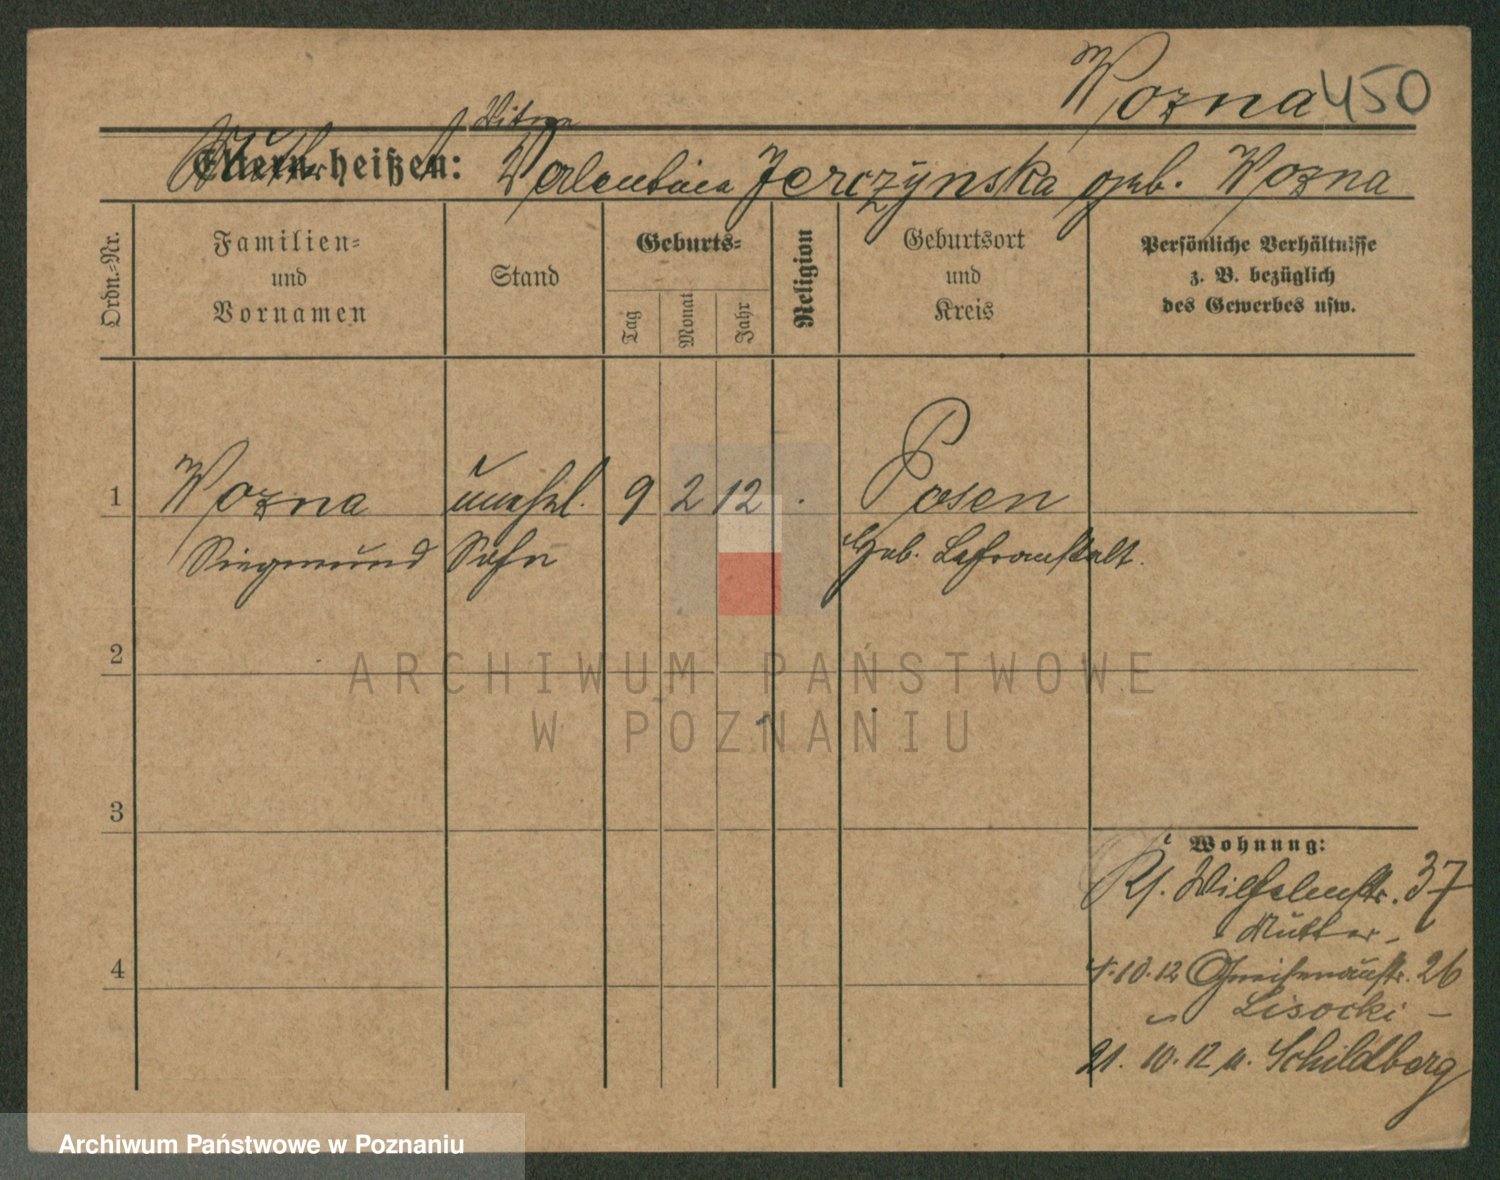 Wozna 450
Witwe
Eltern heißen: Valentina Jerczynska geb. Wozna
Ordn.-Nr.
Familien-
und
Vornamen
Stand
Geburts-
Tag
Monat
Jahr
Religion
Geburtsort
und
Kreis
Persönliche Verhältnisse
z. B. bezüglich
des Gewerbes usw.
1 Wozna unehel. 9 2 12 . Posen
Siegmund Sohn Geb. Lehranstalt.
2
ARCHIWUM PAŃSTWOWE
W POZNANIU
3
Wohnung:
Wilhelmstr. 37
Mutter -
4
4.10.12 Gneisenaustr. 26
Lisocki -
21. 10. 12 n. Schildberg
Archiwum Państwowe w Poznaniu